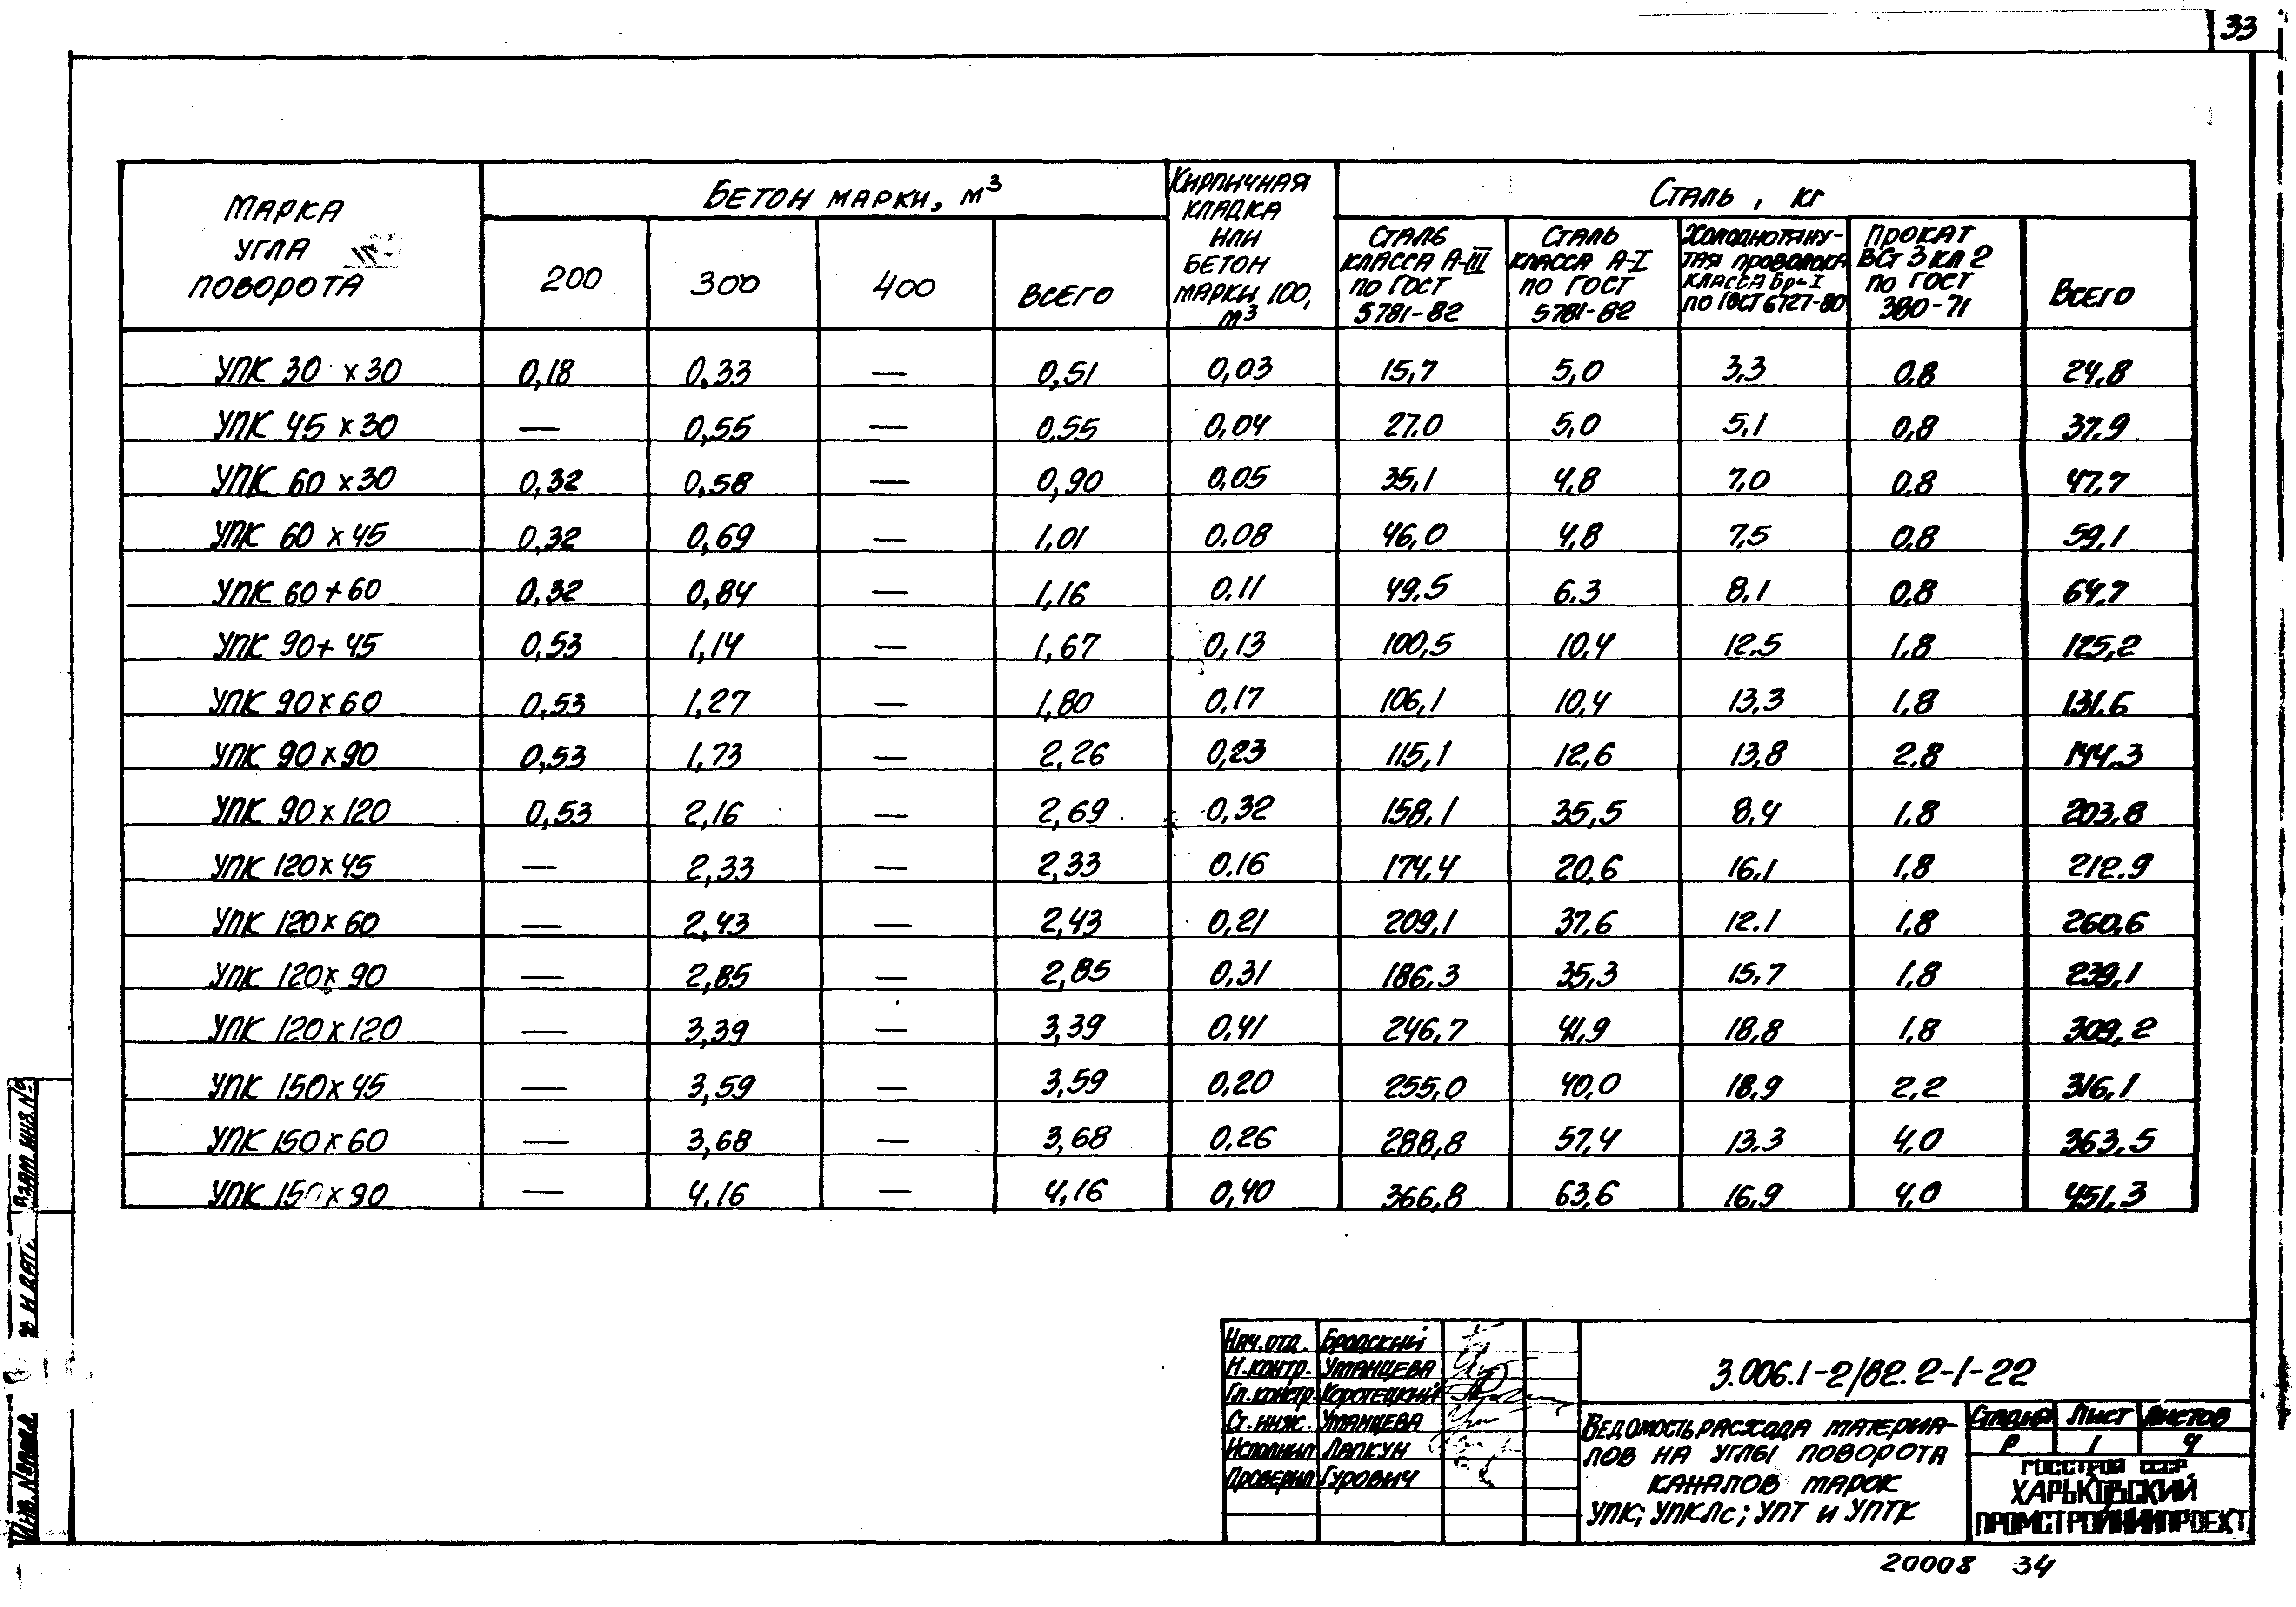 33
Марка угла поворота | Бетон марки, м³ | Кирпичная кладка или бетон марки 100, м³ | Сталь, кг
200 | 300 | 400 | Всего | Сталь класса А-III по ГОСТ 5781-82 | Сталь класса А-I по ГОСТ 5781-82 | Холоднотянутая проволока класса Вр-I по ГОСТ 6727-80 | Прокат ВСт 3 кп 2 по ГОСТ 380-71 | Всего
УПК 30 х 30 | 0,18 | 0,33 | — | 0,51 | 0,03 | 15,7 | 5,0 | 3,3 | 0,8 | 24,8
УПК 45 х 30 | — | 0,55 | — | 0.55 | 0,04 | 27.0 | 5,0 | 5,1 | 0,8 | 37.9
УПК 60 х 30 | 0,32 | 0,58 | — | 0,90 | 0,05 | 35,1 | 4,8 | 7,0 | 0,8 | 47,7
УПК 60 х 45 | 0,32 | 0,69 | — | 1,01 | 0,08 | 46,0 | 4,8 | 7,5 | 0,8 | 59,1
УПК 60+60 | 0,32 | 0,84 | — | 1,16 | 0.11 | 49,5 | 6.3 | 8,1 | 0,8 | 64,7
УПК 90+45 | 0,53 | 1,14 | — | 1,67 | 0,13 | 100,5 | 10,4 | 12.5 | 1.8 | 125,2
УПК 90х60 | 0,53 | 1,27 | — | 1,80 | 0,17 | 106,1 | 10,4 | 13,3 | 1,8 | 131.6
УПК 90х90 | 0,53 | 1,73 | — | 2,26 | 0,23 | 115,1 | 12,6 | 13,8 | 2.8 | 144.3
УПК 90х120 | 0,53 | 2,16 | — | 2,69 | 0,32 | 158,1 | 35,5 | 8,4 | 1,8 | 203.8
УПК 120х45 | — | 2,33 | — | 2,33 | 0.16 | 174,4 | 20,6 | 16,1 | 1,8 | 212.9
УПК 120х60 | — | 2,43 | — | 2,43 | 0,21 | 209,1 | 37,6 | 12.1 | 1,8 | 260,6
УПК 120х90 | — | 2,85 | — | 2,85 | 0,31 | 186,3 | 35,3 | 15,7 | 1,8 | 239,1
УПК 120х120 | — | 3,39 | — | 3,39 | 0,41 | 246,7 | 41,9 | 18,8 | 1,8 | 309,2
УПК 150х45 | — | 3,59 | — | 3,59 | 0,20 | 255,0 | 40,0 | 18,9 | 2,2 | 316,1
УПК 150х60 | — | 3,68 | — | 3,68 | 0,26 | 288,8 | 57,4 | 13.3 | 4,0 | 363.5
УПК 150х90 | — | 4,16 | — | 4,16 | 0,40 | 366,8 | 63,6 | 16,9 | 4,0 | 451.3
Взам. инв. №
и дата
Инв. № подл.
Нач. отд. Бродский
Н. контр. Уманцева
Гл. констр. Коротецкий
Ст. инж. Уманцева
Исполнил Лапкун
Проверил Гурович
3.006.1-2/82.2-1-22
Ведомость расхода материа-
лов на углы поворота
каналов марок
УПК; УПКЛс; УПТ и УПТК
Стадия Лист Листов
Р 1 4
Госстрой СССР
Харьковский
Промстройниипроект
20008 34